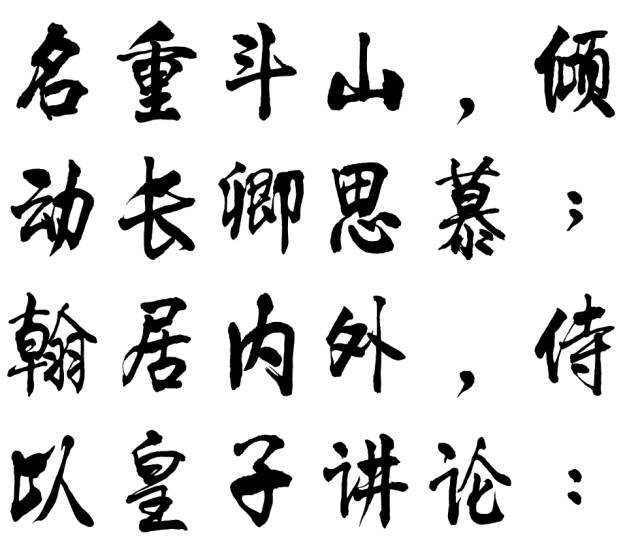 名重斗山，倾
动长卿思慕；
翰居内外，侍
以皇子讲论：